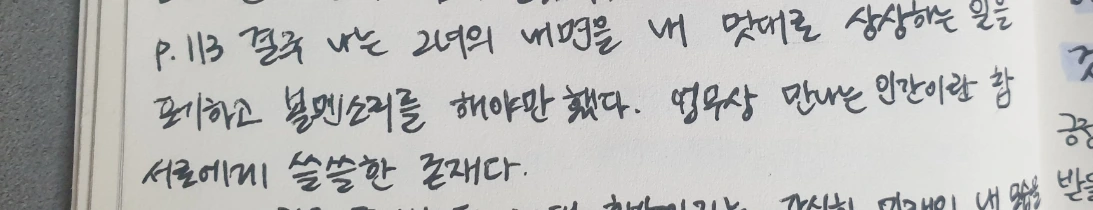 p.113 결국 나는 그녀의 내면을 내 멋대로 상상하는 일을
포기하고 볼멘소리를 해야만 했다. 업무상 만나는 인간이란 함
서로에게 쓸쓸한 존재다.
내 모습을